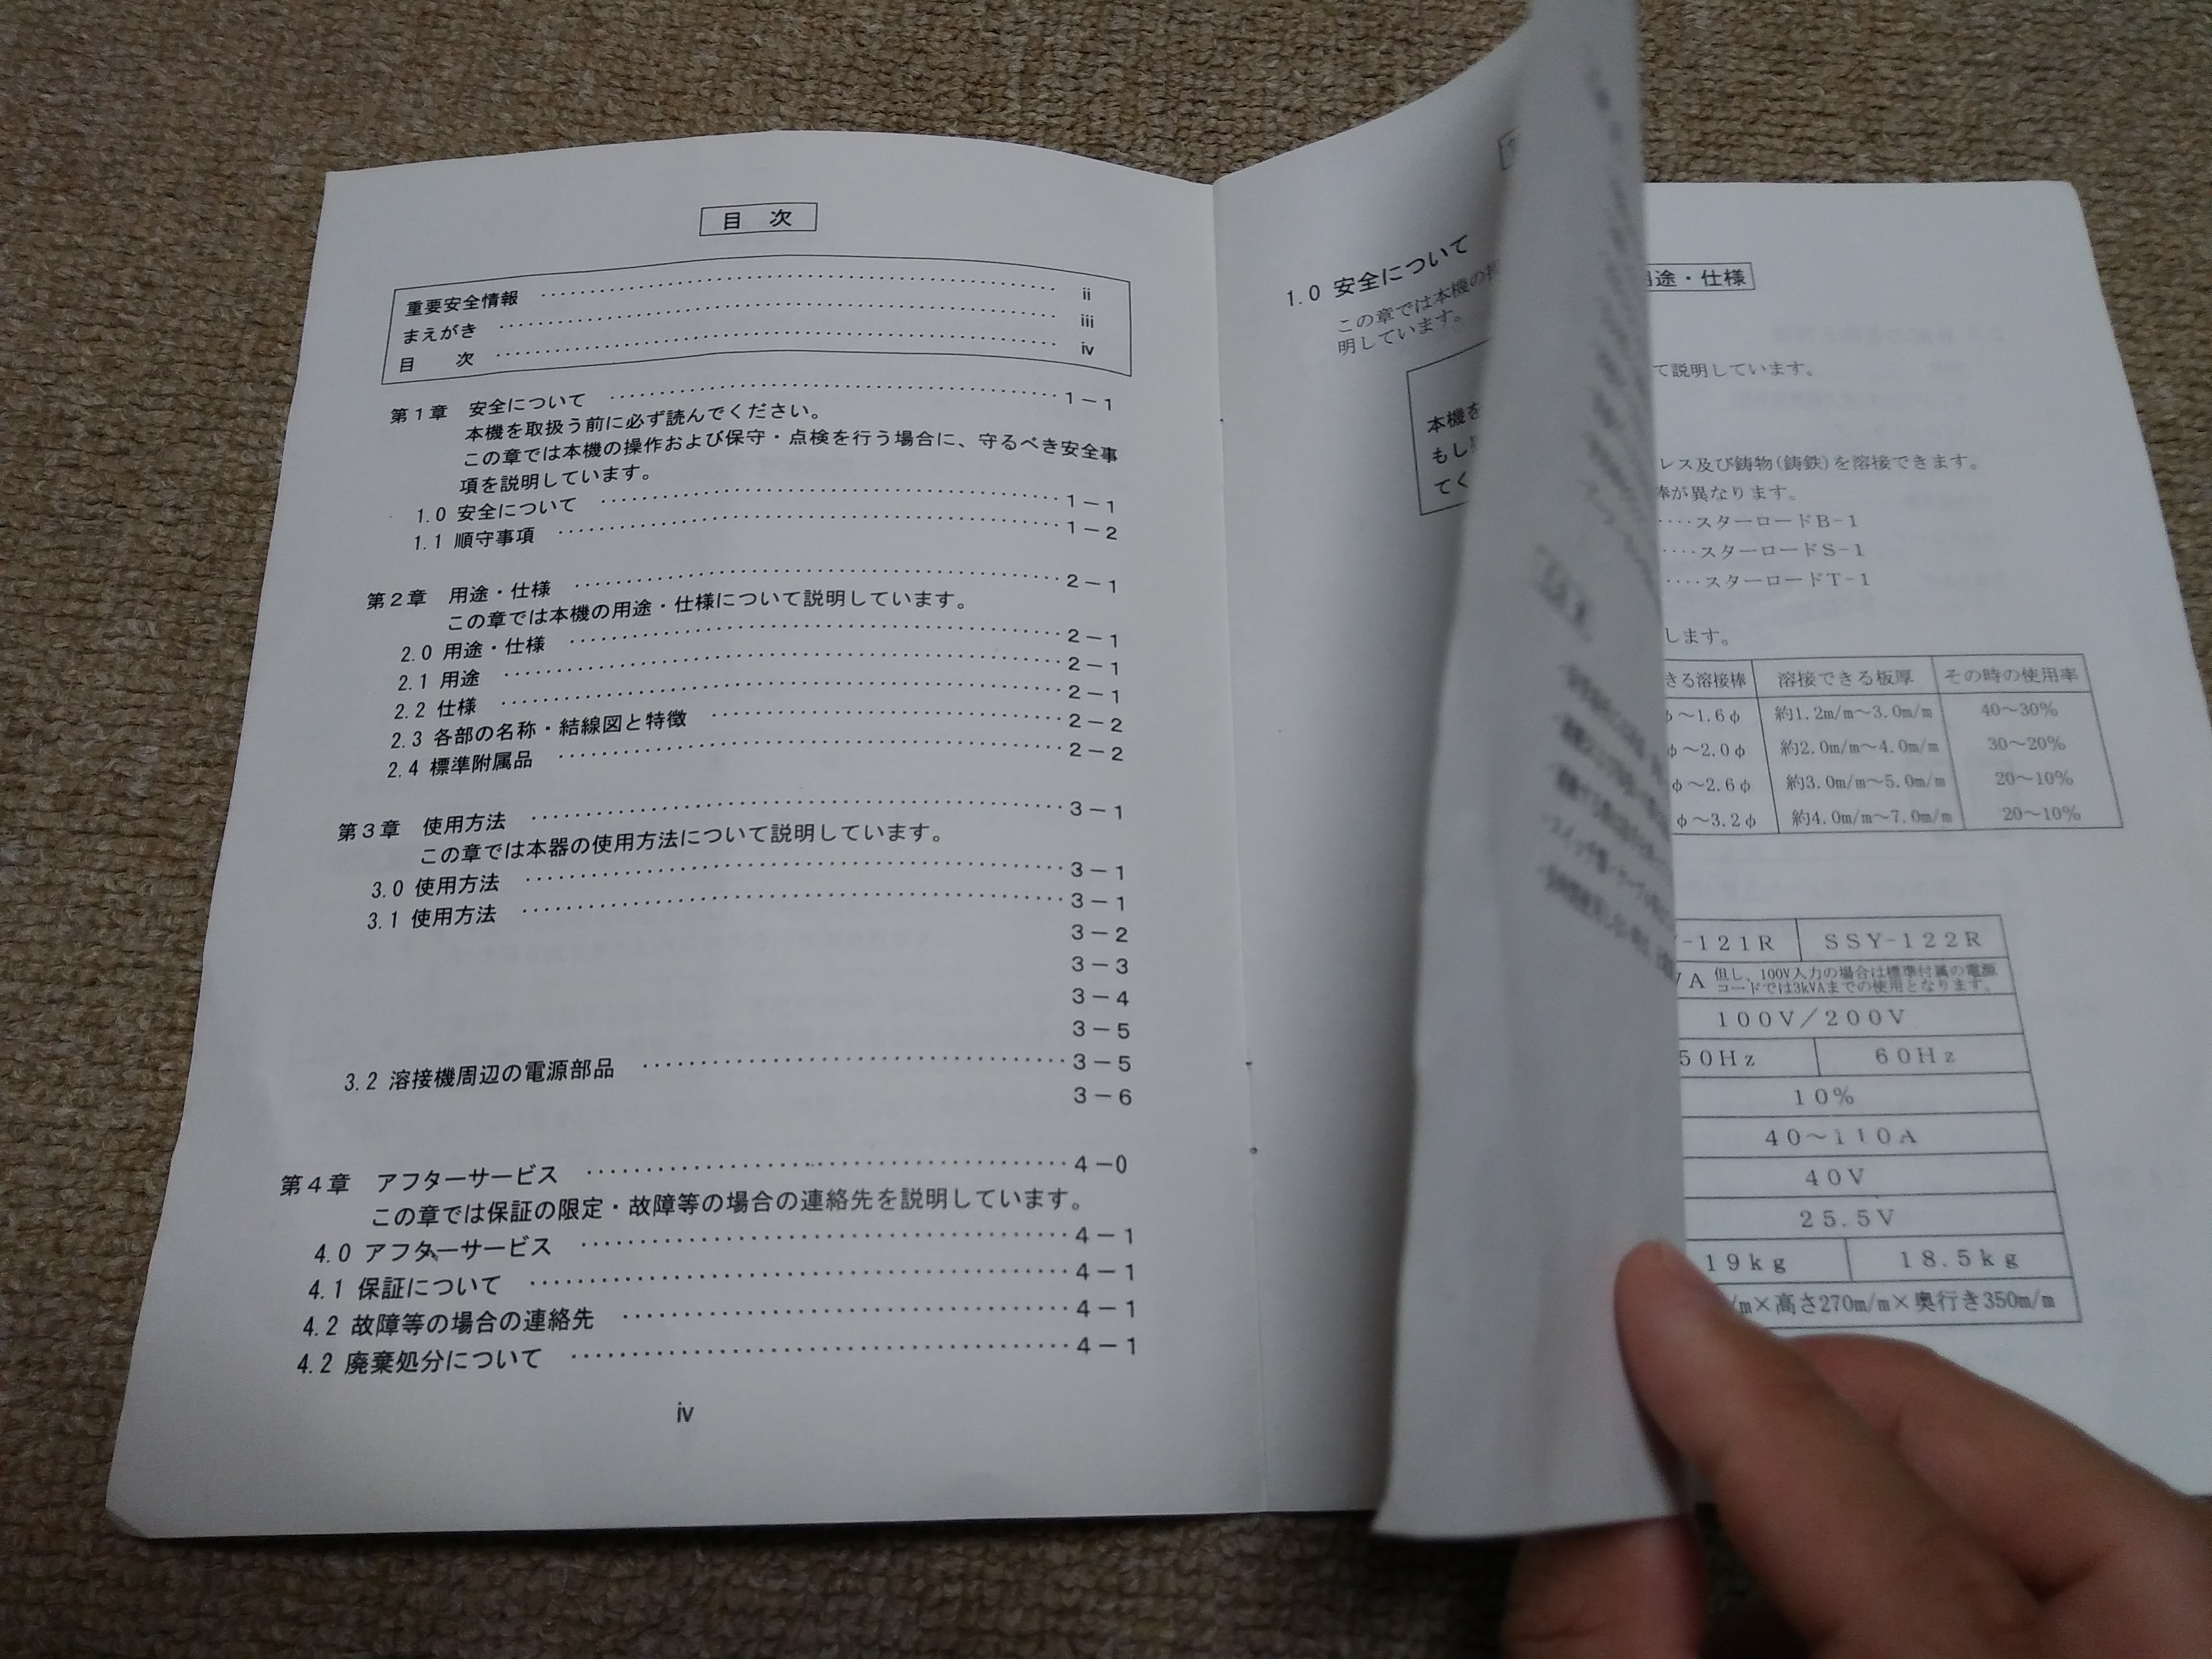 目 次
重要安全情報 ································ ii
まえがき ································ iii
目 次 ································ iv
第1章 安全について ································ 1－1
本機を取扱う前に必ず読んでください。
この章では本機の操作および保守・点検を行う場合に、守るべき安全事
項を説明しています。
1.0 安全について ································ 1－1
1.1 順守事項 ································ 1－2
第2章 用途・仕様 ································ 2－1
この章では本機の用途・仕様について説明しています。
2.0 用途・仕様 ································ 2－1
2.1 用途 ································ 2－1
2.2 仕様 ································ 2－1
2.3 各部の名称・結線図と特徴 ································ 2－2
2.4 標準附属品 ································ 2－2
第3章 使用方法 ································ 3－1
この章では本器の使用方法について説明しています。
3.0 使用方法 ································ 3－1
3.1 使用方法 ································ 3－1
3－2
3－3
3－4
3－5
3.2 溶接機周辺の電源部品 ································ 3－5
3－6
第4章 アフターサービス ································ 4－0
この章では保証の限定・故障等の場合の連絡先を説明しています。
4.0 アフターサービス ································ 4－1
4.1 保証について ································ 4－1
4.2 故障等の場合の連絡先 ································ 4－1
4.2 廃棄処分について ································ 4－1
iv
1.0 安全について
この章では本機の
明しています。
本機を
もし
てく
途・仕様
て説明しています。
レス及び鋳物(鋳鉄)を溶接できます。
棒が異なります。
····スターロードB-1
····スターロードS-1
····スターロードT-1
します。
きる溶接棒 溶接できる板厚 その時の使用率
φ～1.6φ 約1.2m/m～3.0m/m 40～30%
φ～2.0φ 約2.0m/m～4.0m/m 30～20%
φ～2.6φ 約3.0m/m～5.0m/m 20～10%
φ～3.2φ 約4.0m/m～7.0m/m 20～10%
-121R SSY-122R
VA 但し、100V入力の場合は標準付属の電源
コードでは3kVAまでの使用となります。
100V／200V
50Hz 60Hz
10%
40～110A
40V
25.5V
19kg 18.5kg
/m×高さ270m/m×奥行き350m/m